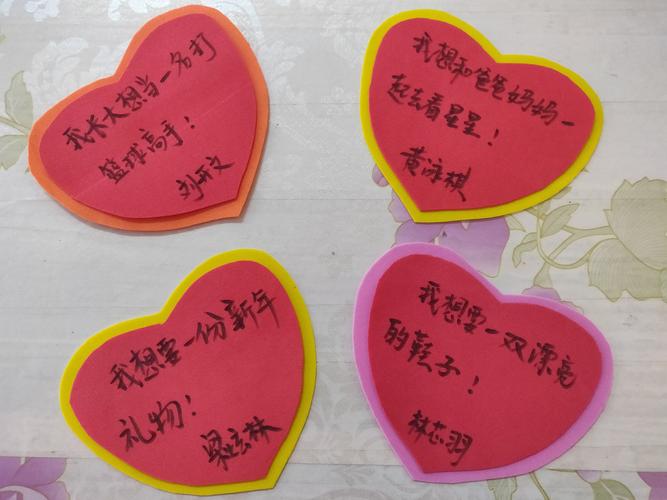 我长大想当一名打
篮球高手！
刘开文
我想和爸爸妈妈一
起去看星星！
黄泳棋
我想要一份新年
礼物！
梁玄林
我想要一双漂亮
的鞋子！
林芯羽